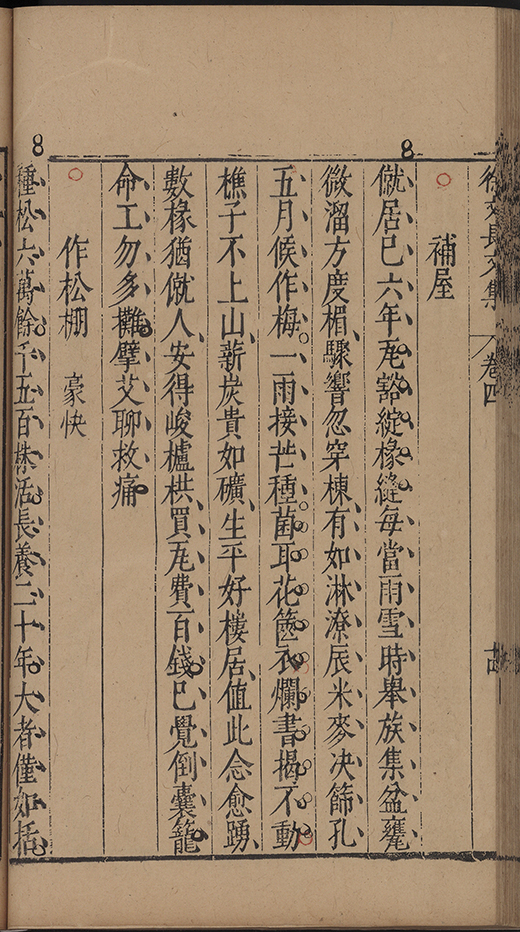 徐文長文集 卷四
8
補屋
僦居已六年瓦豁綻椽縫每當雨雪時舉族集盆甕
微溜方度楣驟響忽穿棟有如淋潦辰米麥决篩孔
五月候作梅一雨接芒種菌耳花篋衣爛書揭不動
樵子不上山薪炭貴如礦生平好樓居值此念愈踴
數椽猶僦人安得峻櫨栱買瓦費百錢已覺倒囊籠
命工勿多攤擘艾聊救痛
作松棚 豪快
8
種松六萬餘千五百株活長養二十年大者僅如括